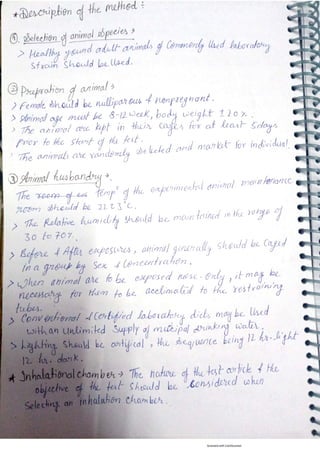 * Description of the method :
① Selection of animal species :
> Healthy young adult animals of Commonly Used laboratory
strain Should be Used.
② Prepration of animals :
> Female should be nulliparous & nonpregnant.
> Animal age must be 8-12 week, body weight ±20%.
> The animal are kept in their cages for at least 5 days
Prior to the start of the test.
> The animals are randomly selected and market for individual.
③ Animal husbandry :
The room temp° of the experimental animal maintenance
room should be 22±3°C.
> The Relative humidity should be maintained in the range of
30 to 70%.
> Before & After exposures, animal generally should be Caged
in a group by Sex & Concentration.
> When animal are to be exposed nose-only, it may be
necessary for them to be acclimated to the restraining
tubes.
> Conventional & Certified laboratory diets may be Used
with an Unlimited Supply of municipal drinking water.
> Lighting Should be artificial, the sequence being 12 hr. light
12 hr. dark.
* Inhalational Chamber → The nature of the test article & the
objective of the test should be Considered when
Selecting an inhalation Chamber.
Scanned with CamScanner